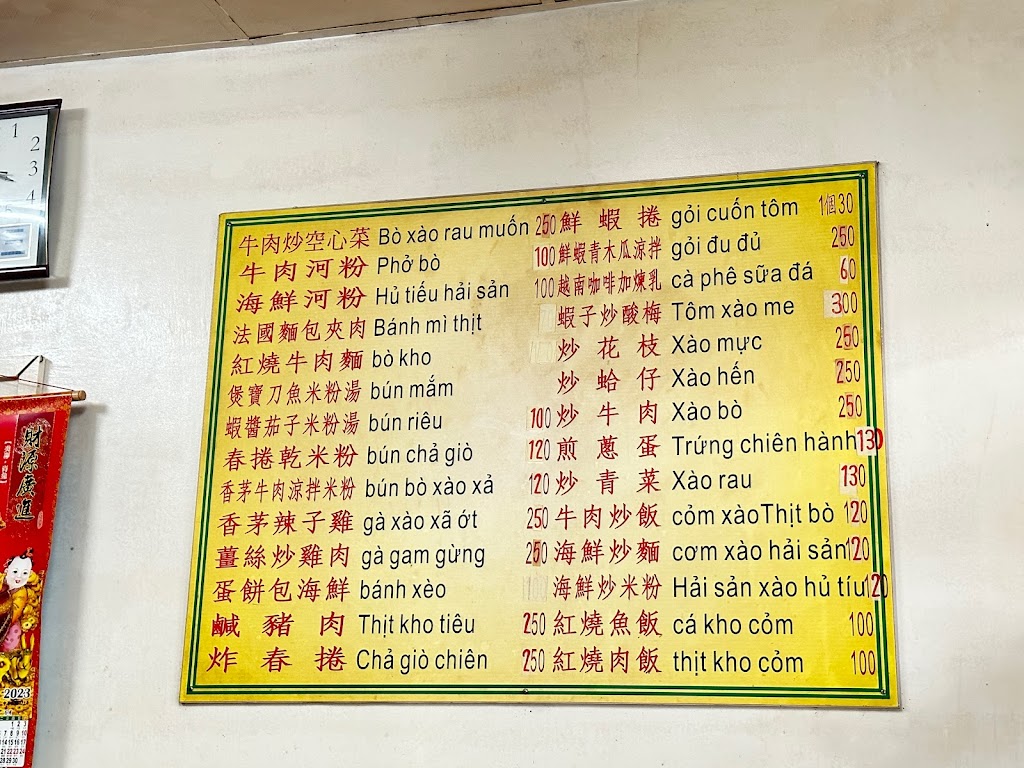 牛肉炒空心菜 Bò xào rau muốn 250
牛肉河粉 Phở bò 100
海鮮河粉 Hủ tiếu hải sản 100
法國麵包夾肉 Bánh mì thịt
紅燒牛肉麵 bò kho
煲寶刀魚米粉湯 bún mắm
蝦醬茄子米粉湯 bún riêu 100
春捲乾米粉 bún chả giò 120
香茅牛肉涼拌米粉 bún bò xào xả 120
香茅辣子雞 gà xào xã ớt 250
薑絲炒雞肉 gà gạm gừng 250
蛋餅包海鮮 bánh xèo 100
鹹豬肉 Thịt kho tiêu 250
炸春捲 Chả giò chiên 250
鮮蝦捲 gỏi cuốn tôm 1個30
鮮蝦青木瓜涼拌 gỏi đu đủ 250
越南咖啡加煉乳 cà phê sữa đá 60
蝦子炒酸梅 Tôm xào me 300
炒花枝 Xào mực 250
炒蛤仔 Xào hến 250
炒牛肉 Xào bò 250
煎蔥蛋 Trứng chiên hành 130
炒青菜 Xào rau 130
牛肉炒飯 cỏm xàoThịt bò 120
海鮮炒麵 cơm xào hải sản 120
海鮮炒米粉 Hải sản xào hủ tíu 120
紅燒魚飯 cá kho cỏm 100
紅燒肉飯 thịt kho cỏm 100
1
2
3
4
財源廣進
2023